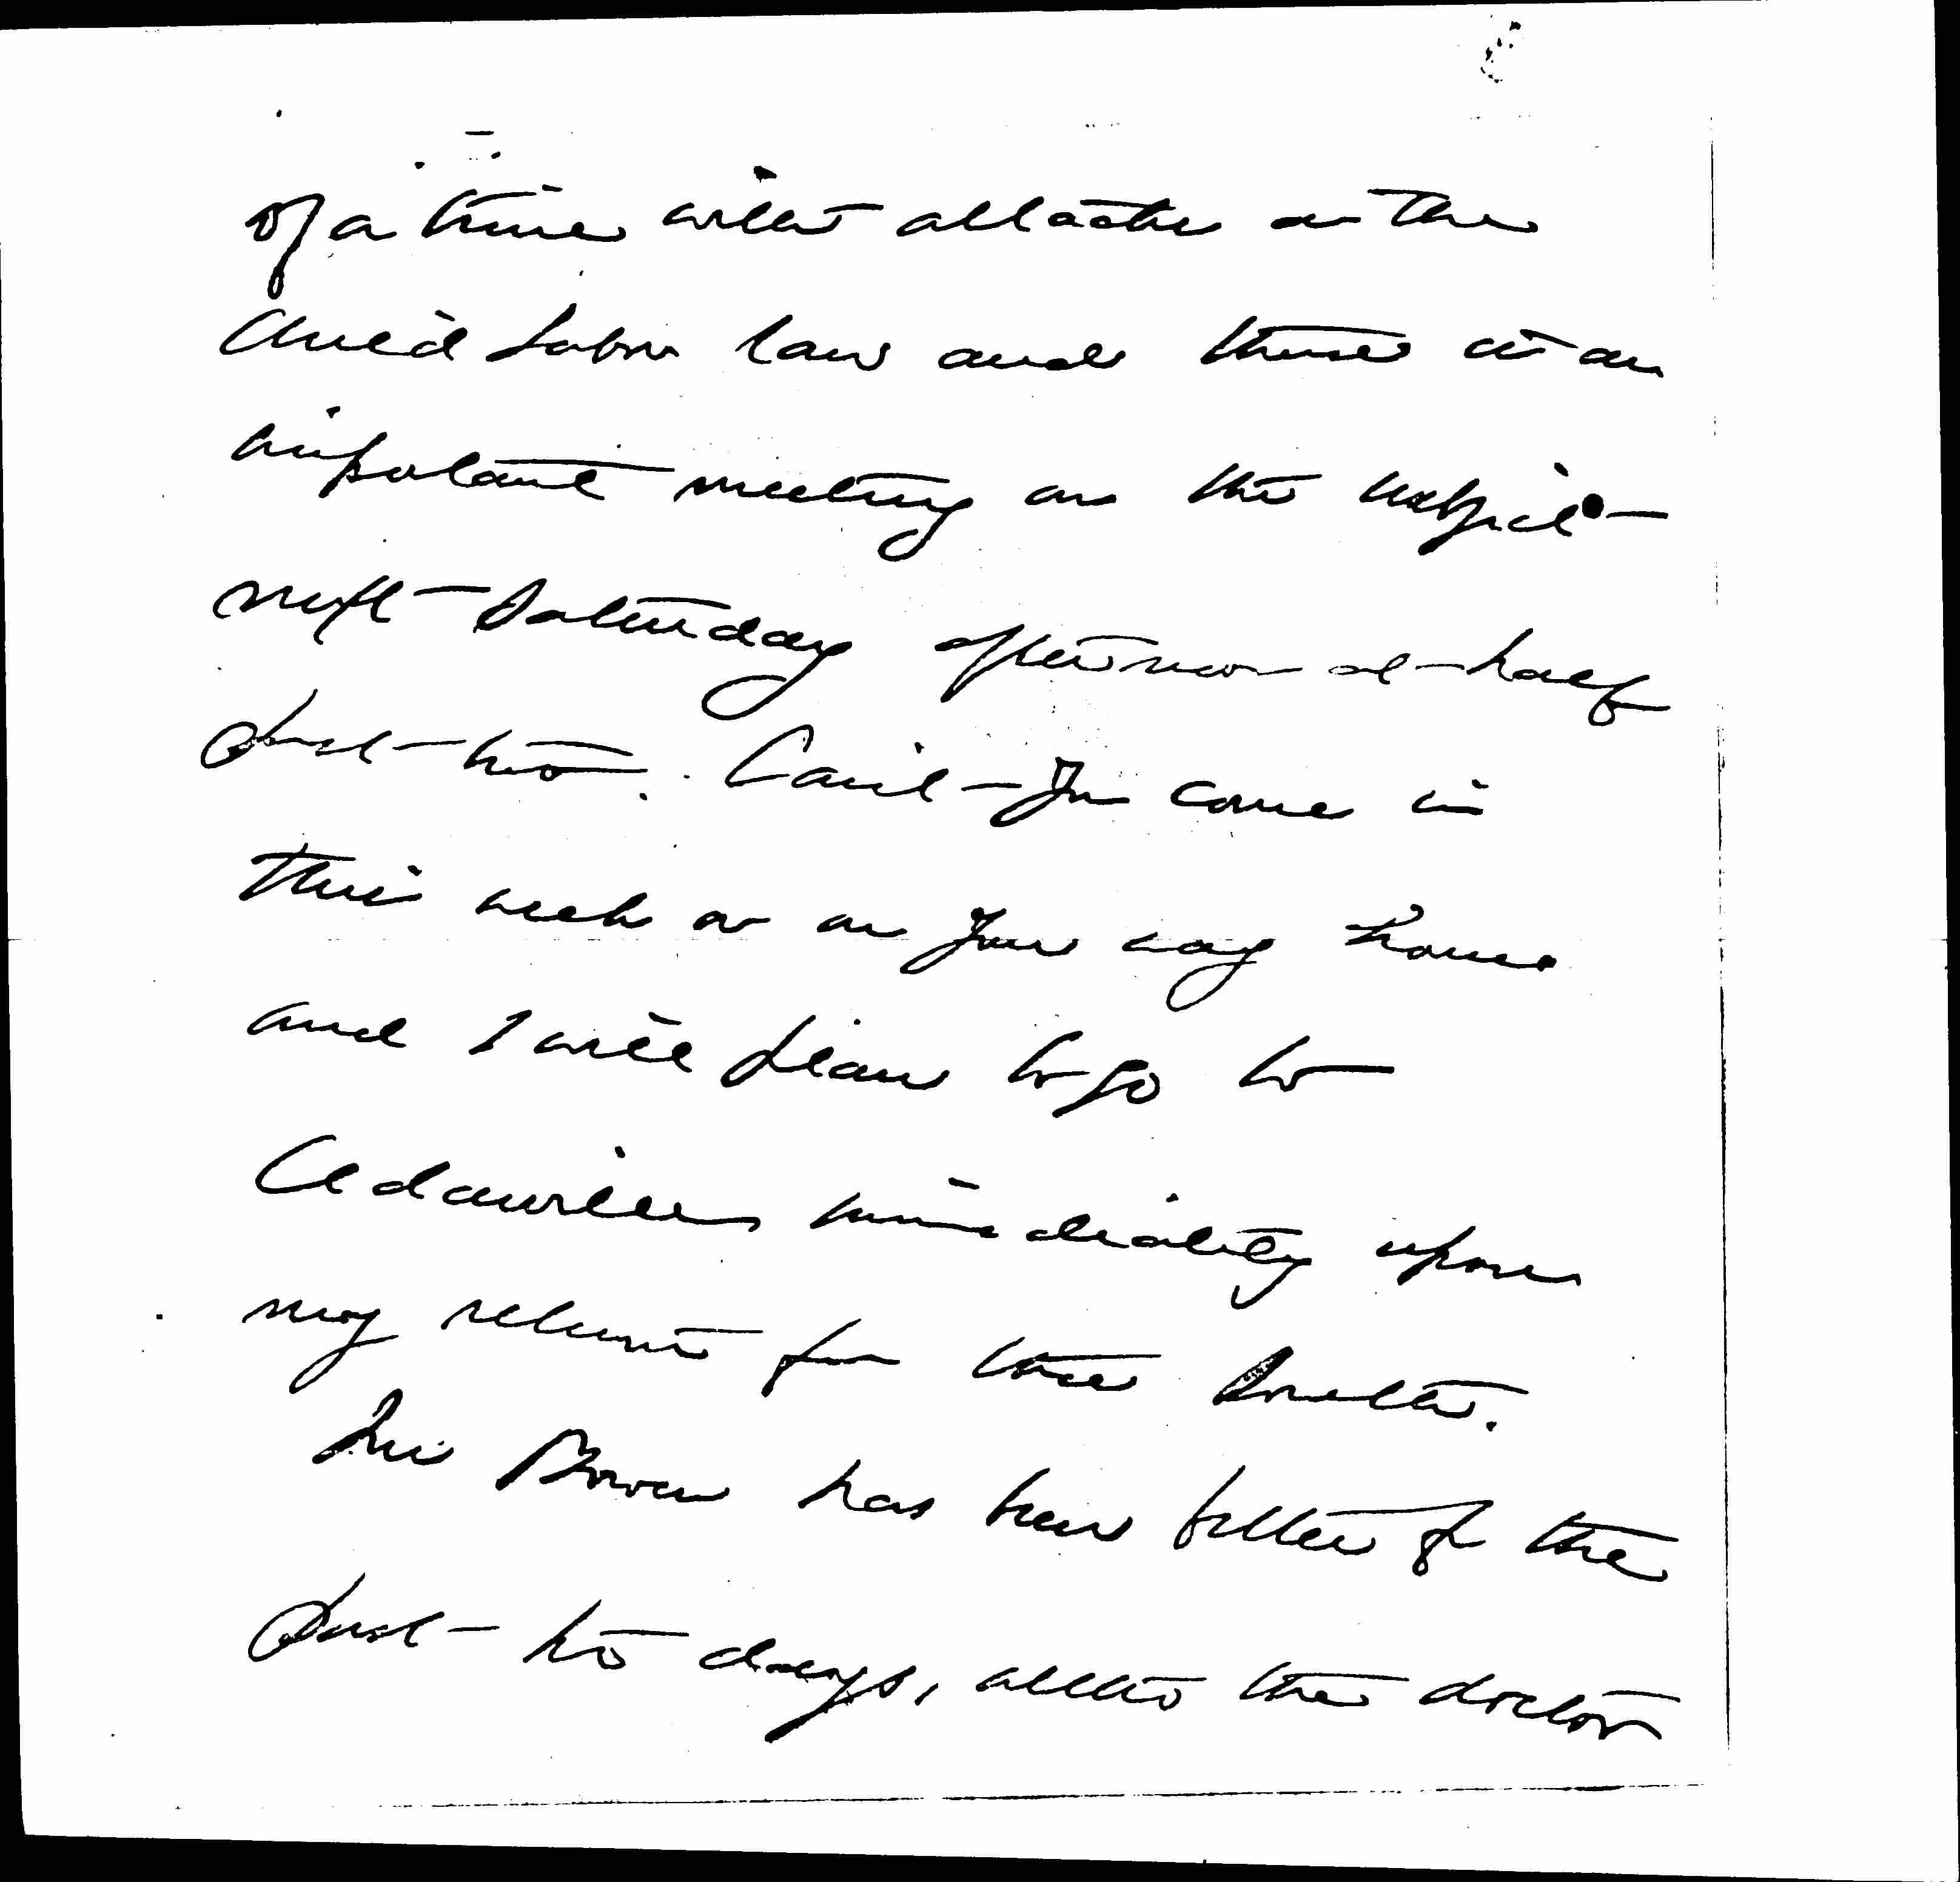 of a time with attacks on the
Child Labor Law and there is an
important meeting on the subject
next Saturday afternoon at half
past two. Can't you come in
this week or on your way home
and I will plan to go to
Cedarville immediately upon
my return from the South.
Mrs Bowen has been better for the
past two days, altho the doctor